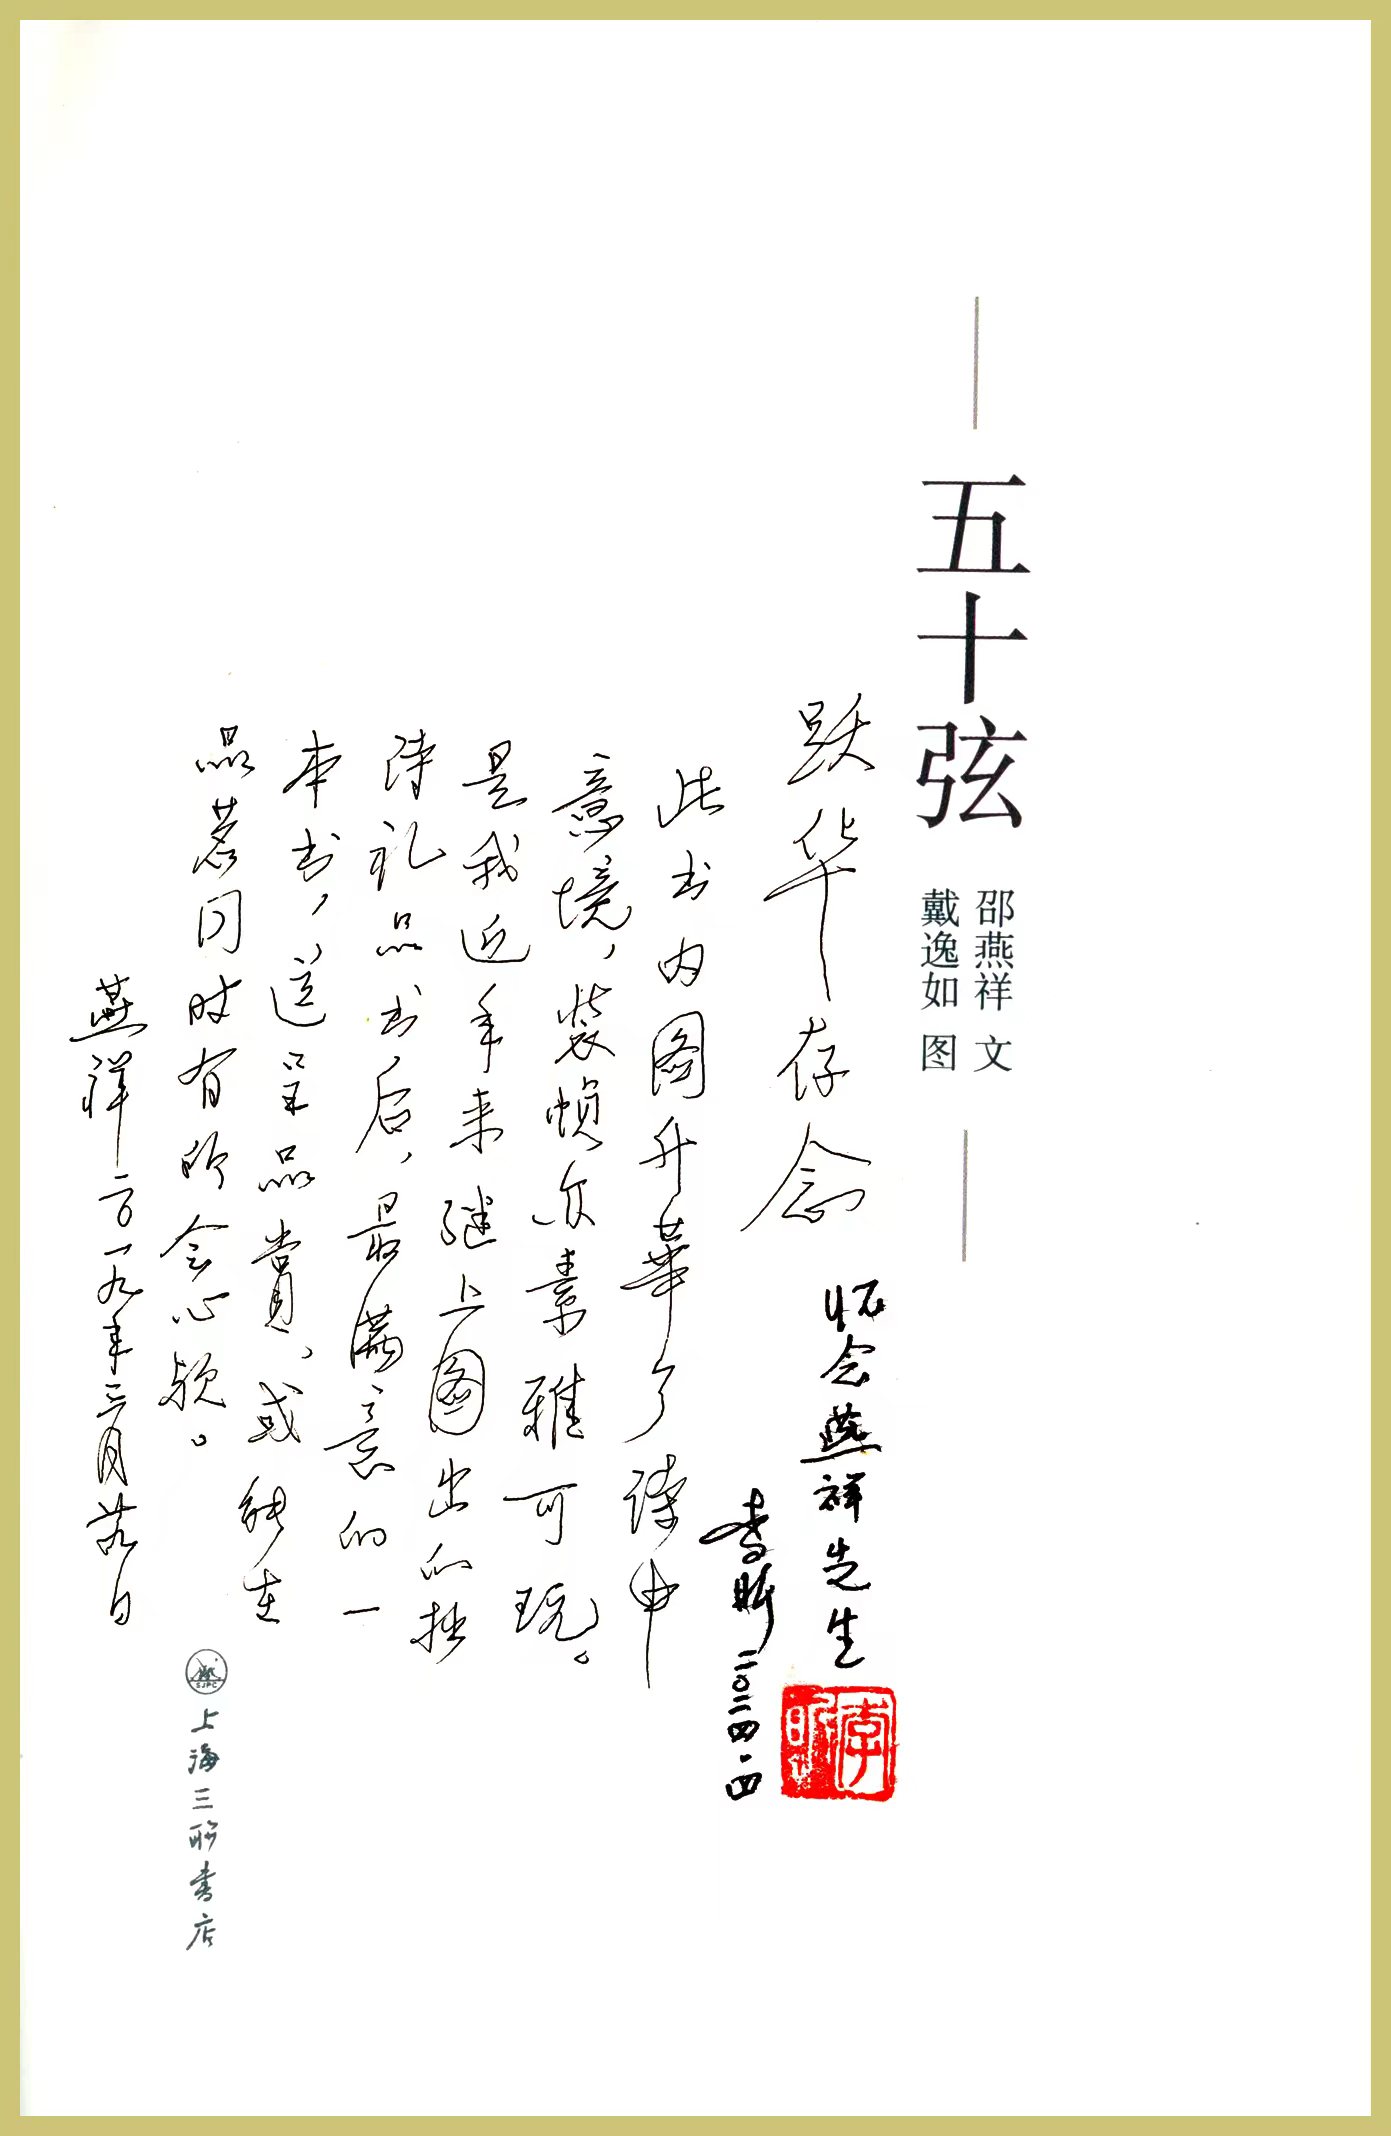 五十弦
邵燕祥 文
戴逸如 图
跃华存念
此书内图升华了诗中
意境，装帧亦素雅可玩。
是我近年来继上图出的拙
诗礼品书后，最满意的一
本书，送呈品赏，或能在
品茗同时有所会心欤。
燕祥二〇一九年三月 日
怀念燕祥先生
李昕 二〇二四·四
李昕
SJPC
上海三联书店